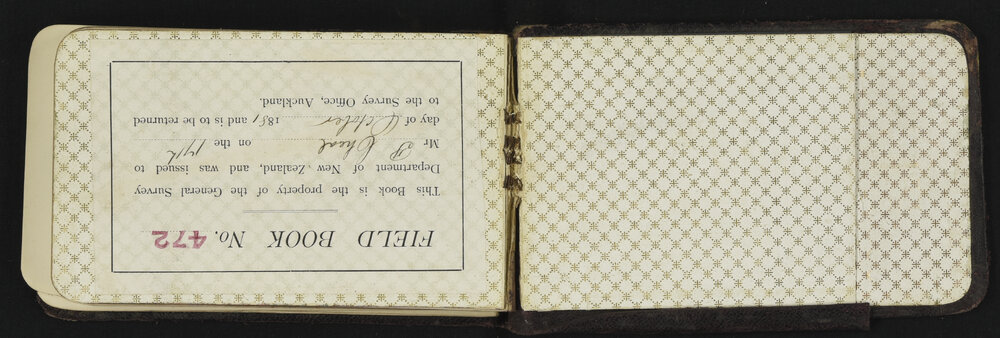 FIELD BOOK No. 472
This Book is the property of the General Survey
Department of New Zealand, and was issued to
Mr P Cheal on the 17th
day of October 1881 and is to be returned
to the Survey Office, Auckland.